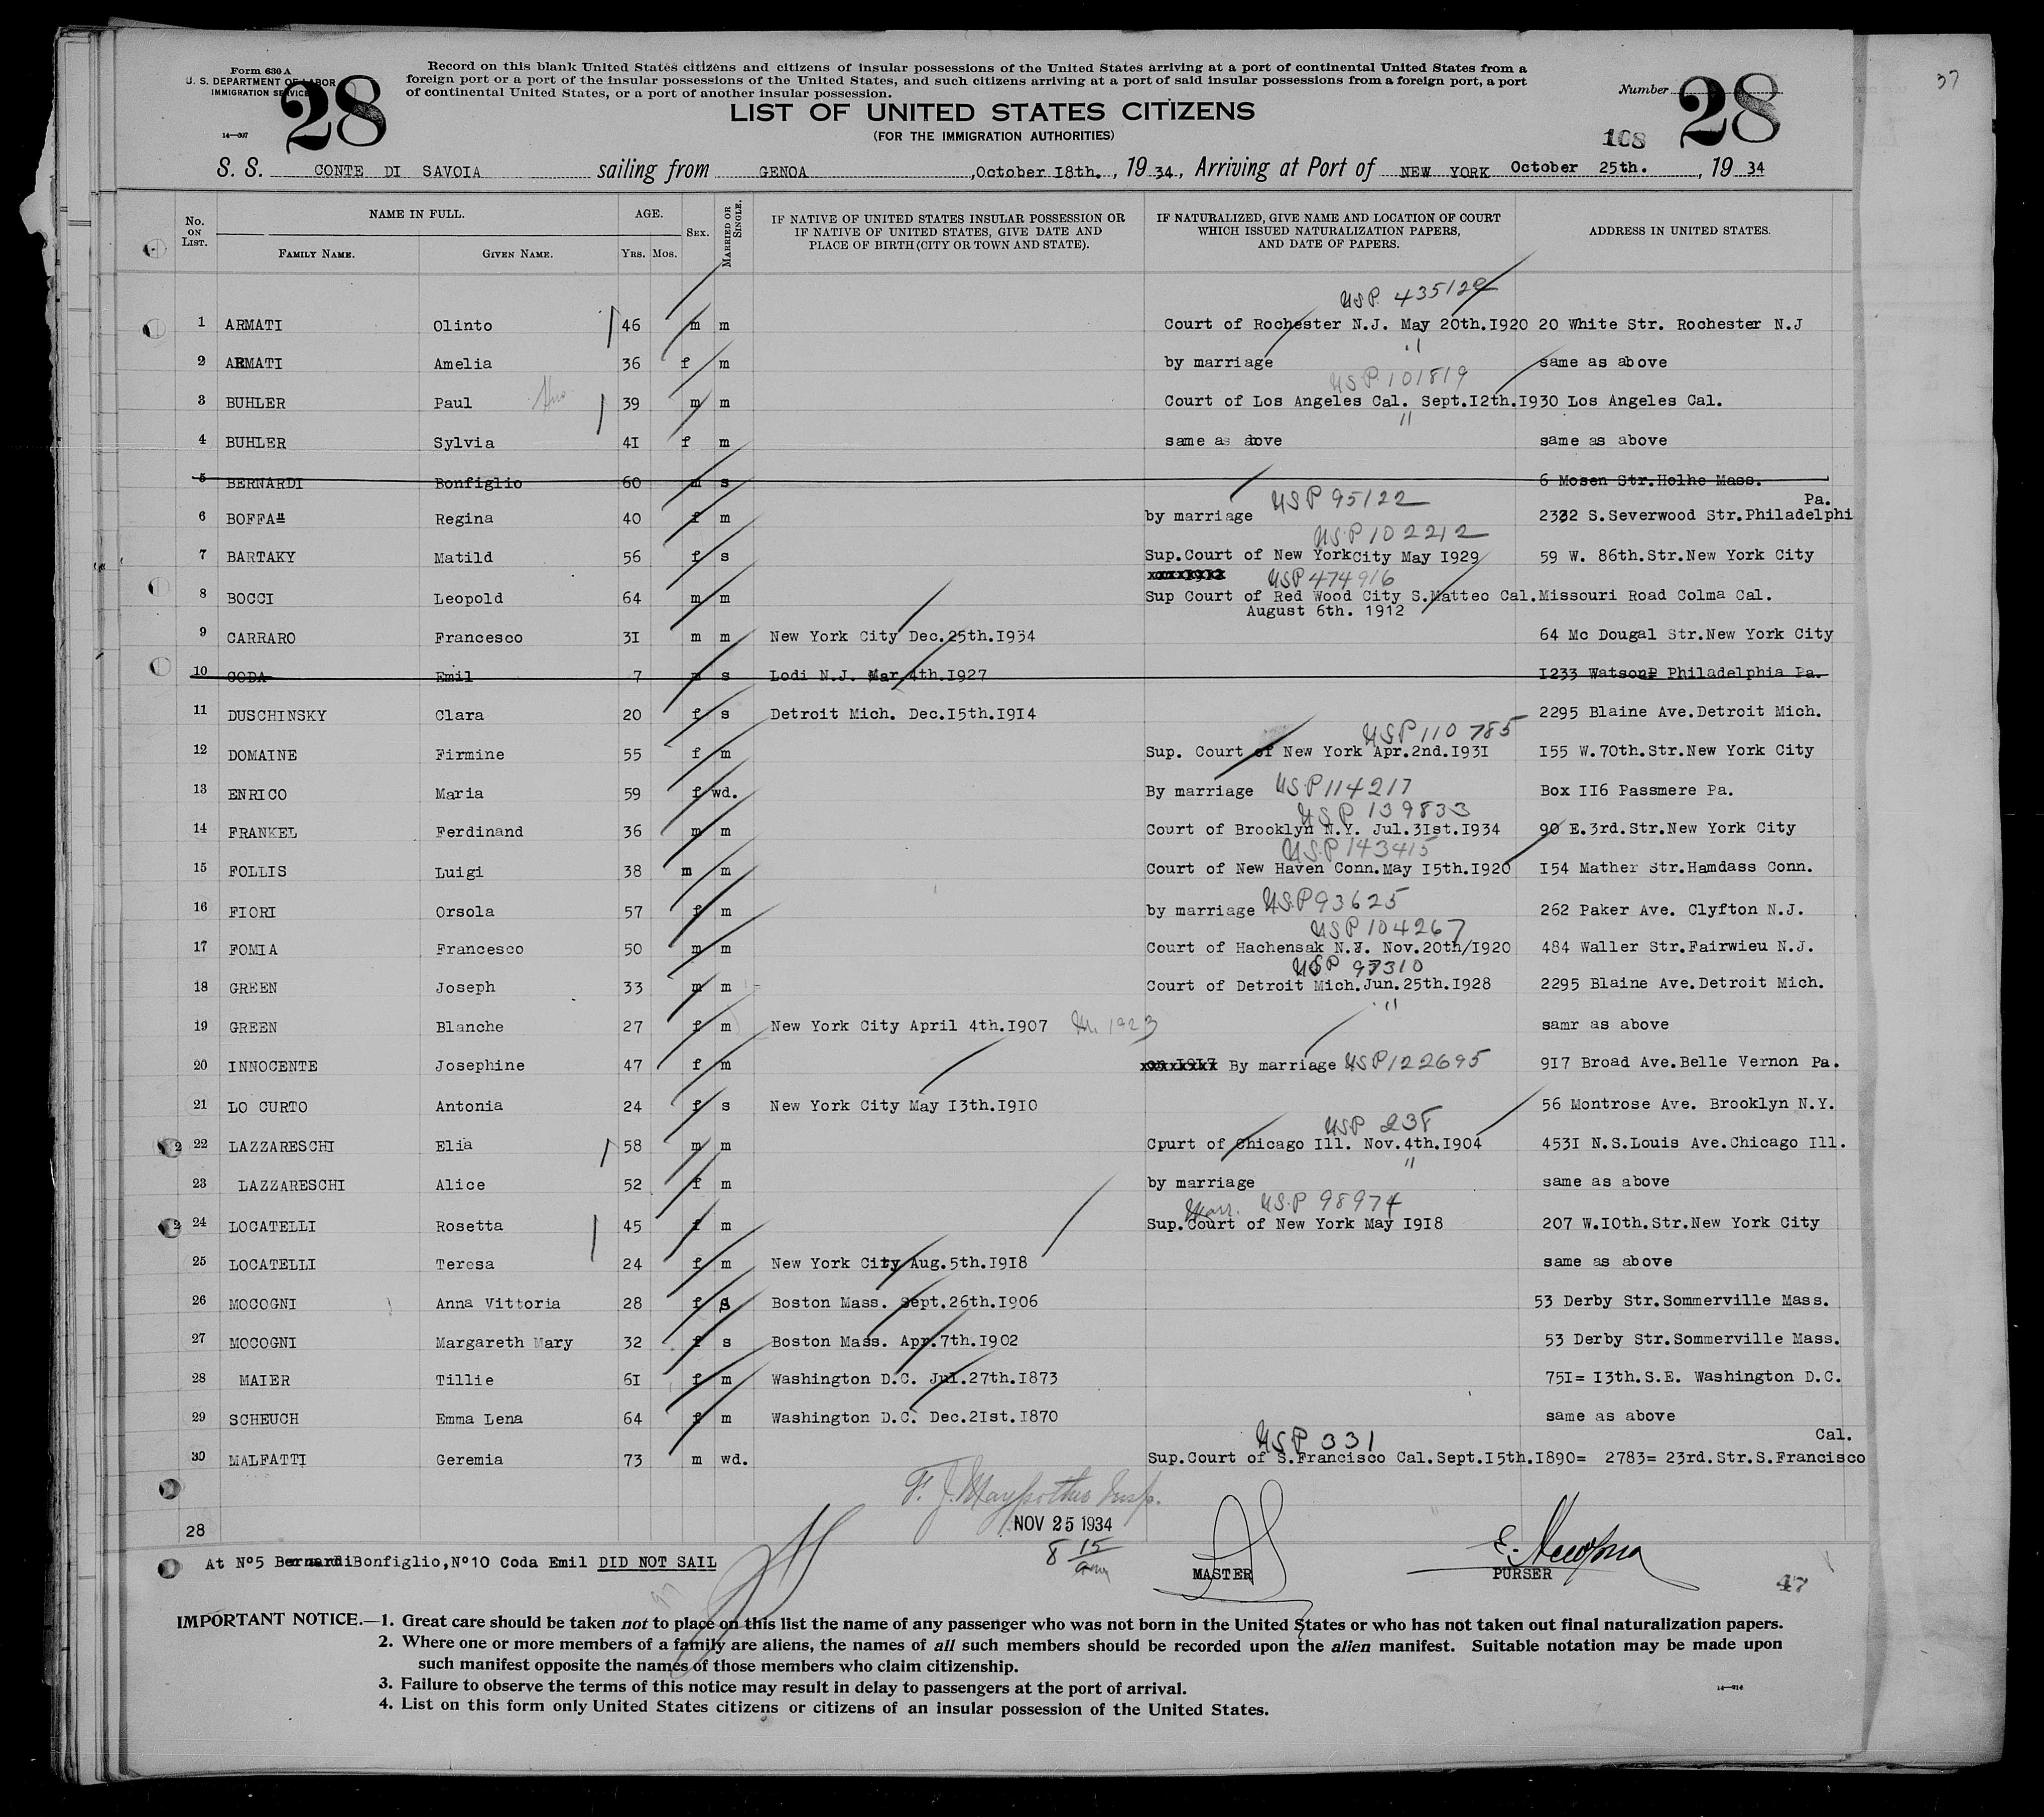 Form 630 A
U. S. DEPARTMENT OF LABOR
IMMIGRATION SERVICE
14—607
28
Record on this blank United States citizens and citizens of insular possessions of the United States arriving at a port of continental United States from a
foreign port or a port of the insular possessions of the United States, and such citizens arriving at a port of said insular possessions from a foreign port, a port
of continental United States, or a port of another insular possession.
Number 28
37
LIST OF UNITED STATES CITIZENS
(FOR THE IMMIGRATION AUTHORITIES)
108
S. S. CONTE DI SAVOIA sailing from GENOA, October I8th., 19 34, Arriving at Port of NEW YORK October 25th., 19 34
No. ON LIST. NAME IN FULL. FAMILY NAME. GIVEN NAME. AGE. YRS. MOS. SEX. MARRIED OR SINGLE. IF NATIVE OF UNITED STATES INSULAR POSSESSION OR IF NATIVE OF UNITED STATES, GIVE DATE AND PLACE OF BIRTH (CITY OR TOWN AND STATE). IF NATURALIZED, GIVE NAME AND LOCATION OF COURT WHICH ISSUED NATURALIZATION PAPERS, AND DATE OF PAPERS. ADDRESS IN UNITED STATES.
USP. 435129
1 ARMATI Olinto 46 m m Court of Rochester N.J. May 20th.I920 20 White Str. Rochester N.J
"
2 ARMATI Amelia 36 f m by marriage same as above
USP 101819
3 BUHLER Paul 39 m m Court of Los Angeles Cal. Sept.I2th.I930 Los Angeles Cal.
"
4 BUHLER Sylvia 4I f m same as above same as above
5 BERNARDI Bonfiglio 60 m s 6 Mosen Str.Holhe Mass.
USP 95122 Pa.
6 BOFFA Regina 40 f m by marriage 2332 S.Severwood Str.Philadelphi
USP 102212
7 BARTAKY Matild 56 f s Sup.Court of New YorkCity May I929 59 W. 86th.Str.New York City
USP 474916
8 BOCCI Leopold 64 m m Sup Court of Red Wood City S.Matteo Cal.Missouri Road Colma Cal.
August 6th. 1912
9 CARRARO Francesco 3I m m New York City Dec.25th.I934 64 Mc Dougal Str.New York City
10 CODA Emil 7 m s Lodi N.J. Mar 4th.I927 I233 Watson Philadelphia Pa.
11 DUSCHINSKY Clara 20 f s Detroit Mich. Dec.I5th.I9I4 2295 Blaine Ave.Detroit Mich.
USP 110 785
12 DOMAINE Firmine 55 f m Sup. Court of New York Apr.2nd.I93I I55 W.70th.Str.New York City
13 ENRICO Maria 59 f wd. By marriage USP 114217 Box II6 Passmere Pa.
USP 139833
14 FRANKEL Ferdinand 36 m m Court of Brooklyn N.Y. Jul.3Ist.I934 90 E.3rd.Str.New York City
USP 143415
15 FOLLIS Luigi 38 m m Court of New Haven Conn.May I5th.I920 I54 Mather Str.Hamdass Conn.
16 FIORI Orsola 57 f m by marriage USP 93625 262 Paker Ave. Clyfton N.J.
USP 104267
17 FOMIA Francesco 50 m m Court of Hachensak N.Y. Nov.20th/I920 484 Waller Str.Fairwieu N.J.
USP 97310
18 GREEN Joseph 33 m m Court of Detroit Mich.Jun.25th.I928 2295 Blaine Ave.Detroit Mich.
"
19 GREEN Blanche 27 f m New York City April 4th.I907 1923 samr as above
20 INNOCENTE Josephine 47 f m By marriage USP 122695 9I7 Broad Ave.Belle Vernon Pa.
21 LO CURTO Antonia 24 f s New York City May I3th.I9I0 56 Montrose Ave. Brooklyn N.Y.
USP 238
2 22 LAZZARESCHI Elia 58 m m Cpurt of Chicago Ill. Nov.4th.I904 453I N.S.Louis Ave.Chicago Ill.
"
23 LAZZARESCHI Alice 52 f m by marriage same as above
Marr. USP 98974
2 24 LOCATELLI Rosetta 45 f m Sup.Court of New York May I9I8 207 W.I0th.Str.New York City
25 LOCATELLI Teresa 24 f m New York City Aug.5th.I9I8 same as above
26 MOCOGNI Anna Vittoria 28 f s Boston Mass. Sept.26th.I906 53 Derby Str.Sommerville Mass.
27 MOCOGNI Margareth Mary 32 f s Boston Mass. Apr.7th.I902 53 Derby Str.Sommerville Mass.
28 MAIER Tillie 6I f m Washington D.C. Jul.27th.I873 75I= I3th.S.E. Washington D.C.
29 SCHEUCH Emma Lena 64 f m Washington D.C. Dec.2Ist.I870 same as above
USP 331 Cal.
30 MALFATTI Geremia 73 m wd. Sup.Court of S.Francisco Cal.Sept.I5th.I890= 2783= 23rd.Str.S.Francisco
NOV 25 1934
28
8 15 am
At Nº5 BernardiBonfiglio,Nº10 Coda Emil DID NOT SAIL
MASTER
PURSER
47
IMPORTANT NOTICE.—1. Great care should be taken not to place on this list the name of any passenger who was not born in the United States or who has not taken out final naturalization papers.
2. Where one or more members of a family are aliens, the names of all such members should be recorded upon the alien manifest. Suitable notation may be made upon
such manifest opposite the names of those members who claim citizenship.
3. Failure to observe the terms of this notice may result in delay to passengers at the port of arrival.
4. List on this form only United States citizens or citizens of an insular possession of the United States.